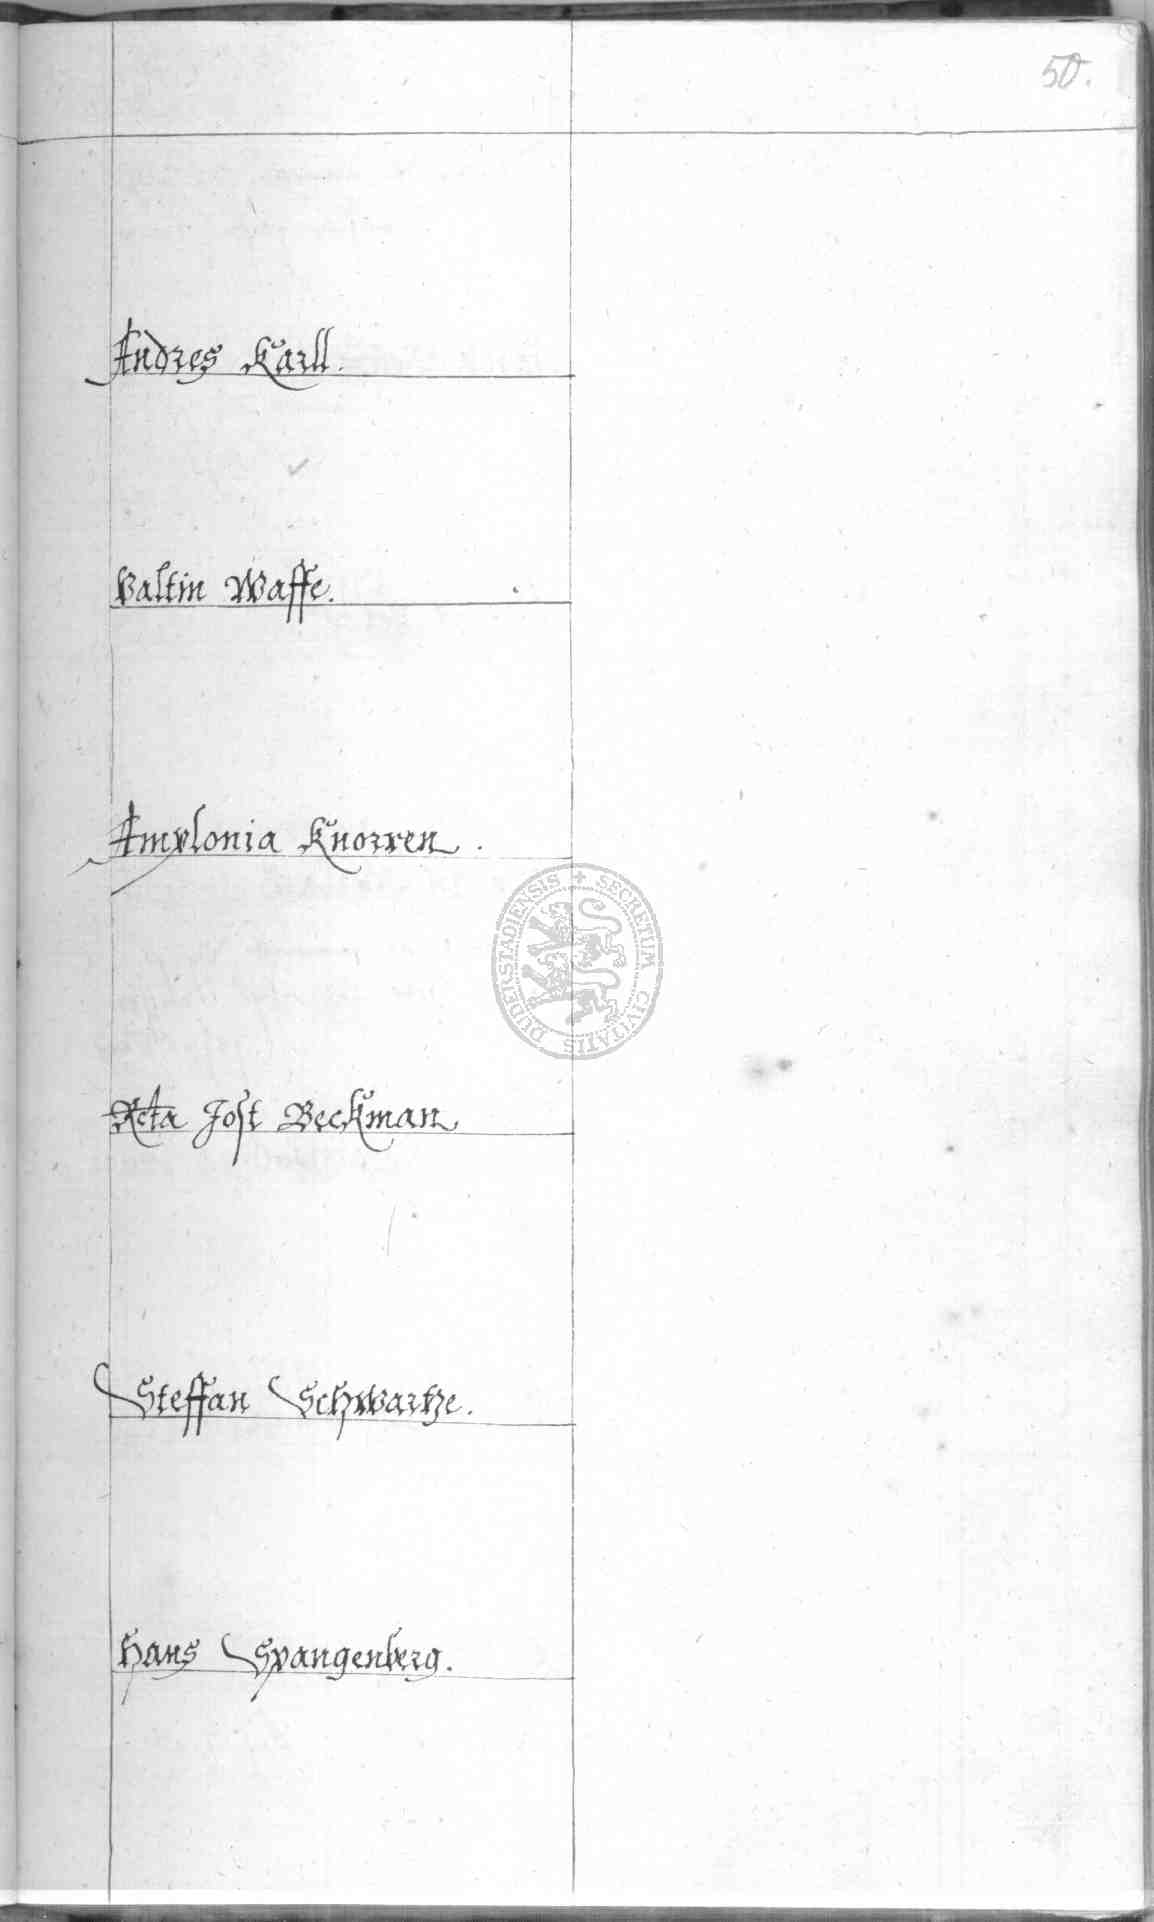 50.
Andres Karll.
Valtin Waffe.
Amplonia Knorren.
Jost Beckman
Steffan Schwartze.
Hans Spangenberg.
SECRETUM CIVITATIS DUDERSTADIENSIS